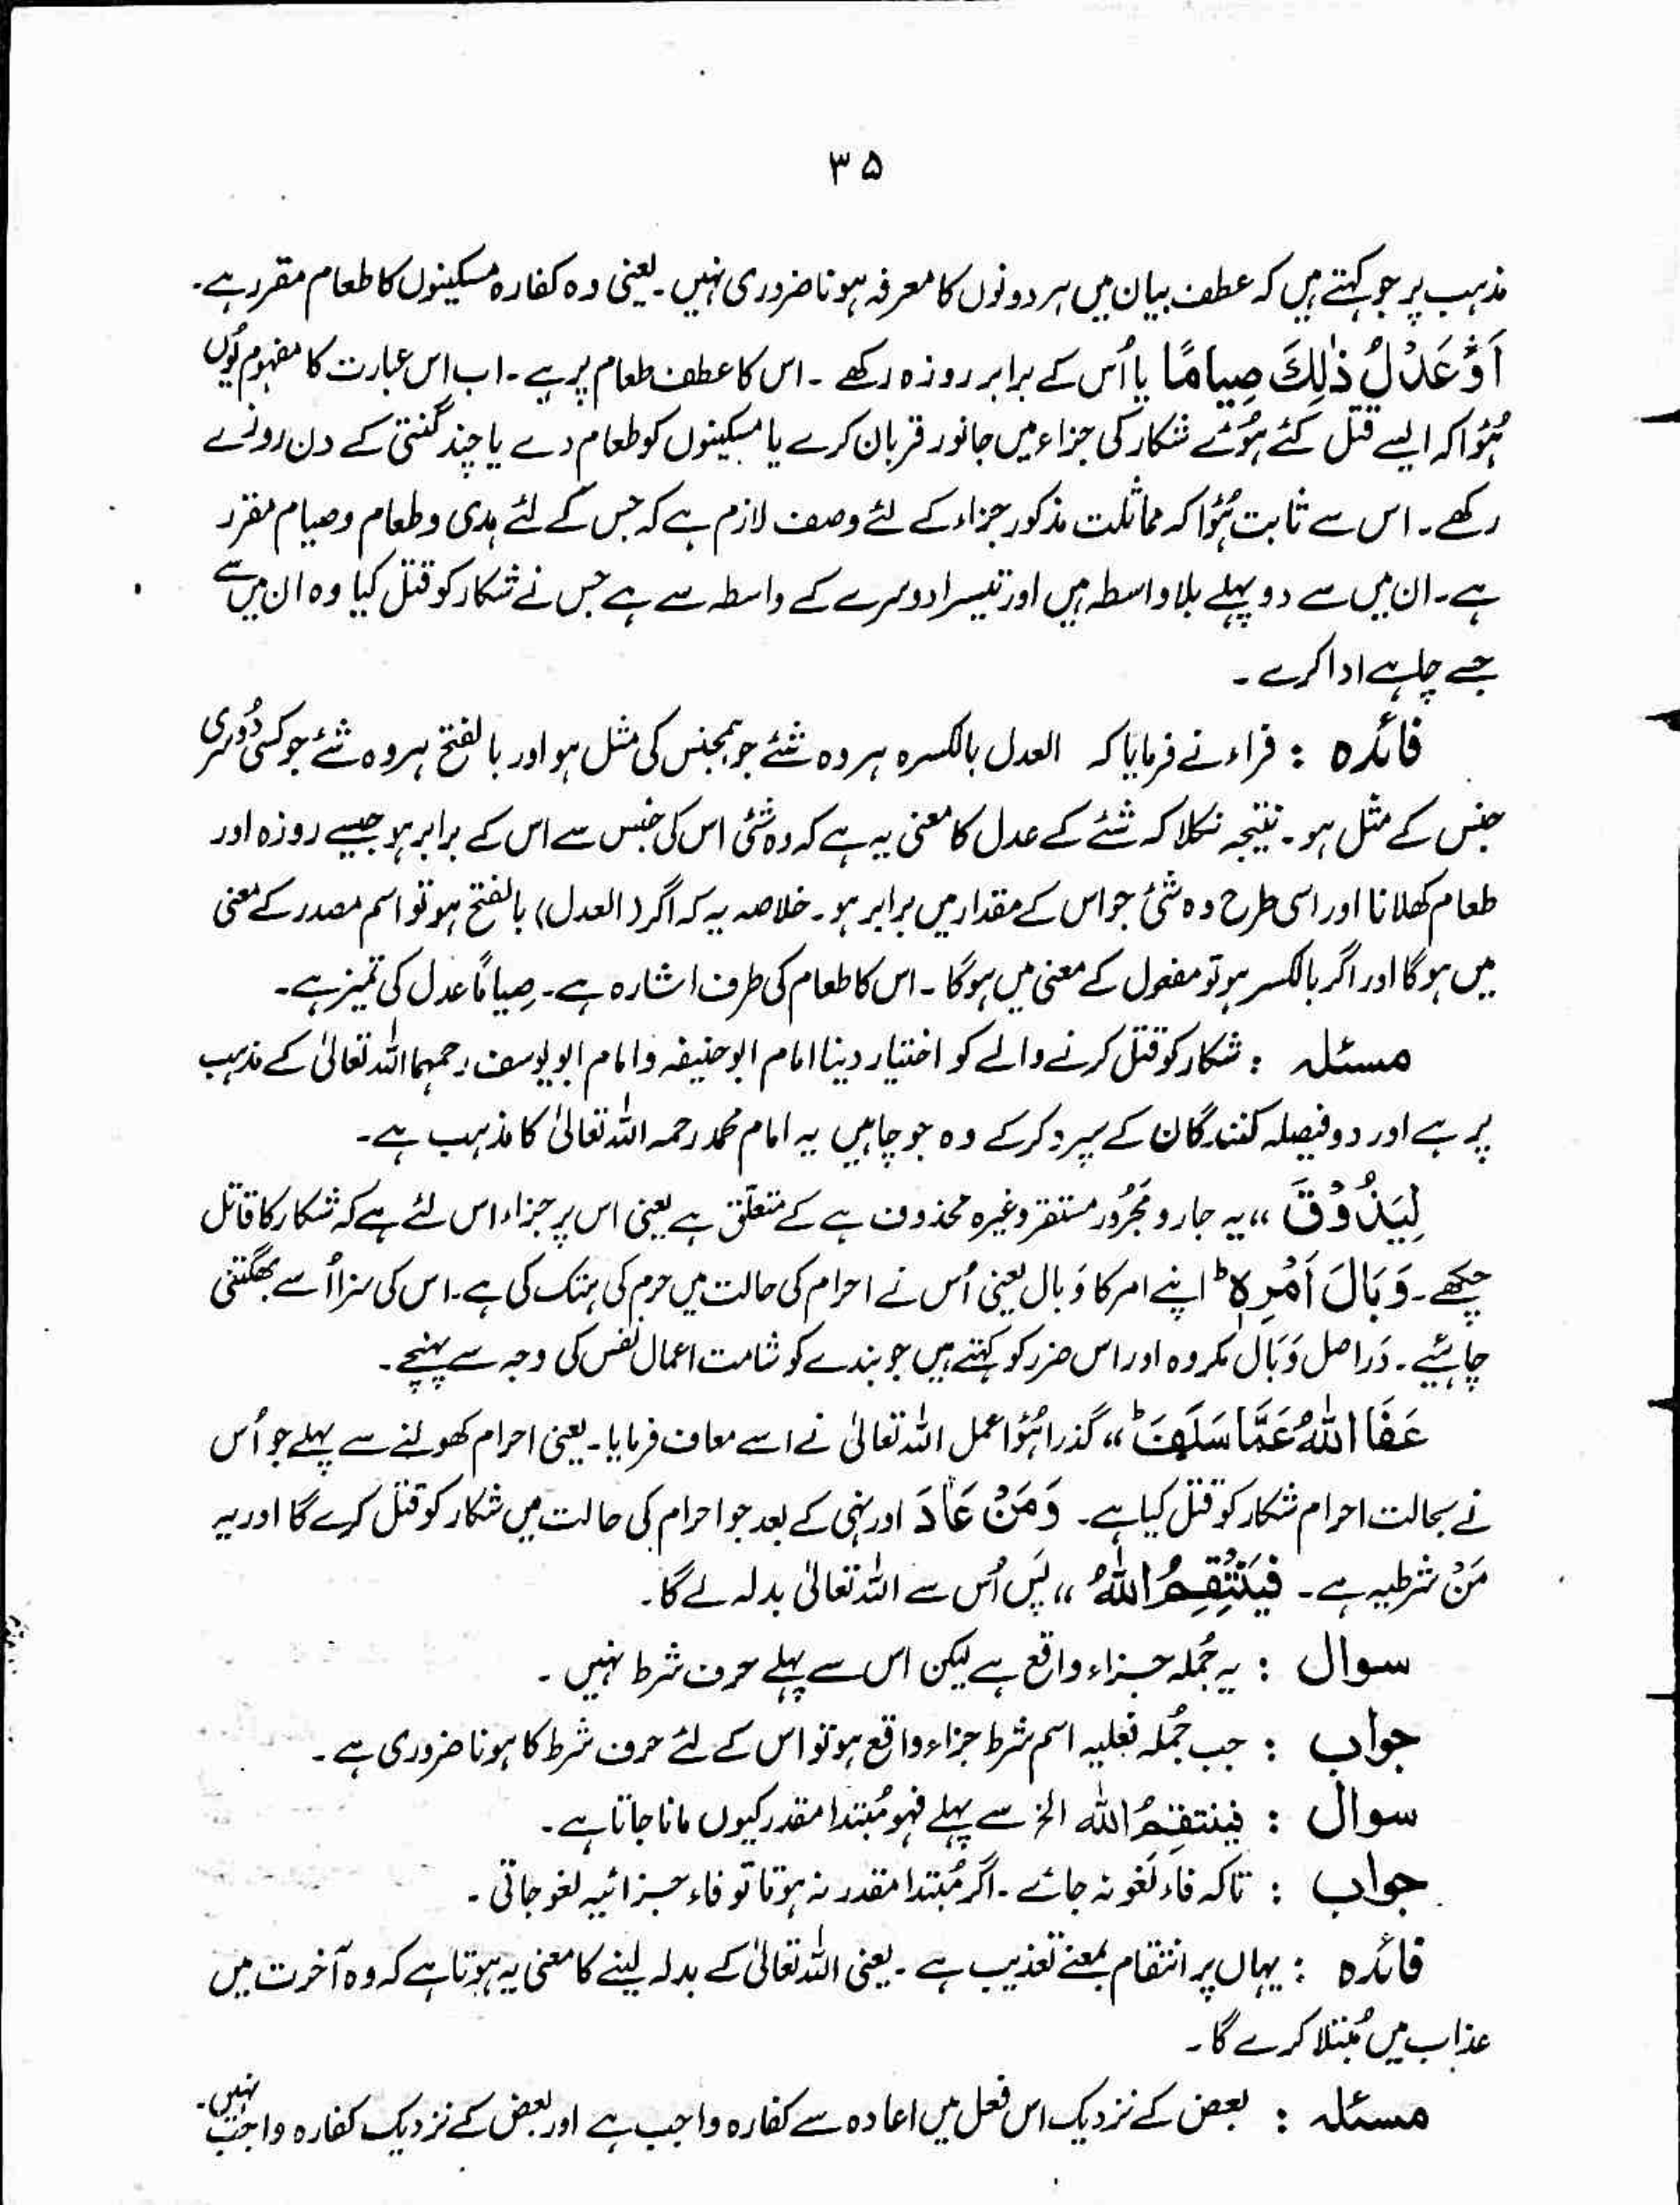 ۳۵
مذہب پر جو کہتے ہیں کہ عطف بیان میں ہر دونوں کا معرفہ ہونا ضروری نہیں۔ یعنی وہ کفارہ مسکینوں کا طعام مقرر ہے۔
اَوْ عَدْلُ ذٰلِكَ صِيامًا یا اُس کے برابر روزہ رکھے ۔ اس کا عطف طعام پر ہے ۔ اب اس عبارت کا مفہوم یُوں
ہُوا کہ ایسے قتل کئے ہُوئے شکار کی جزاء میں جانور قربان کرے یا مسکینوں کو طعام دے یا چند گنتی کے دن روزے
رکھے۔ اس سے ثابت ہُوا کہ مماثلت مذکور جزاء کے لئے وصف لازم ہے کہ جس کے لئے ہدی و طعام و صیام مقرر
ہے۔ ان میں سے دو پہلے بلاواسطہ ہیں اور تیسرا دوسرے کے واسطہ سے ہے جس نے شکار کو قتل کیا وہ ان میں سے
جسے چاہے ادا کرے ۔
فائدہ : فراء نے فرمایا کہ العدل بالکسرہ ہر وہ شئے جو ہمجنس کی مثل ہو اور بالفتح ہر وہ شئے جو کسی دُوسری
جنس کے مثل ہو۔ نتیجہ نکلا کہ شئے کے عدل کا معنی یہ ہے کہ وہ شئی اس کی جنس سے اس کے برابر ہو جیسے روزہ اور
طعام کھلانا اور اسی طرح وہ شئی جو اس کے مقدار میں برابر ہو۔ خلاصہ یہ کہ اگر (العدل) بالفتح ہو تو اسم مصدر کے معنی
میں ہوگا اور اگر بالکسر ہو تو مفعول کے معنی میں ہوگا ۔ اس کا طعام کی طرف اشارہ ہے۔ صِیامًا عدل کی تمیز ہے۔
مسئلہ : شکار کو قتل کرنے والے کو اختیار دینا امام ابوحنیفہ و امام ابو یوسف رحمہما اللہ تعالیٰ کے مذہب
پر ہے اور دو فیصلہ کنندگان کے سپرد کرکے وہ جو چاہیں یہ امام محمد رحمہ اللہ تعالیٰ کا مذہب ہے۔
لِيَذُوْقَ ،، یہ جار و مجرُور مستقر وغیرہ محذوف ہے کے متعلّق ہے یعنی اس پر جزاء اس لئے ہے کہ شکار کا قاتل
چکھے۔ وَبَالَ اَمْرِهٖ ؕ اپنے امر کا وَبال یعنی اُس نے احرام کی حالت میں حرم کی ہتک کی ہے۔ اس کی سزا اُسے بھگتنی
چاہئیے۔ دَراصل وَبَال مکروہ اور اس ضرر کو کہتے ہیں جو بندے کو شامت اعمال نفس کی وجہ سے پہنچے ۔
عَفَا اللّٰهُ عَمَّا سَلَفَ ؕ ،، گذرا ہُوا عمل اللہ تعالیٰ نے اسے معاف فرمایا۔ یعنی احرام کھولنے سے پہلے جو اُس
نے بحالت احرام شکار کو قتل کیا ہے۔ وَمَنْ عَادَ اور نہی کے بعد جو احرام کی حالت میں شکار کو قتل کرے گا اور یہ
مَنْ شرطیہ ہے ۔ فَيَنْتَقِمُ اللّٰهُ ،، پس اُس سے اللہ تعالیٰ بدلہ لے گا۔
سوال : یہ جُملہ جزاء واقع ہے لیکن اس سے پہلے حرف شرط نہیں ۔
جواب : جب جُملہ فعلیہ اسم شرط جزاء واقع ہو تو اس کے لئے حرف شرط کا ہونا ضروری ہے ۔
سوال : فینتقمُ اللہ الخ سے پہلے فہو مُبتدا مقدر کیوں مانا جاتا ہے۔
جواب : تاکہ فاء لغو نہ جائے ۔ اگر مُبتدا مقدر نہ ہوتا تو فاء جزائیہ لغو جاتی ۔
فائدہ : یہاں پر انتقام بمعنے تعذیب ہے ۔ یعنی اللہ تعالیٰ کے بدلہ لینے کا معنی یہ ہوتا ہے کہ وہ آخرت میں
عذاب میں مُبتلا کرے گا ۔
مسئلہ : بعض کے نزدیک اس فعل میں اعادہ سے کفارہ واجب ہے اور بعض کے نزدیک کفارہ واجب نہیں۔